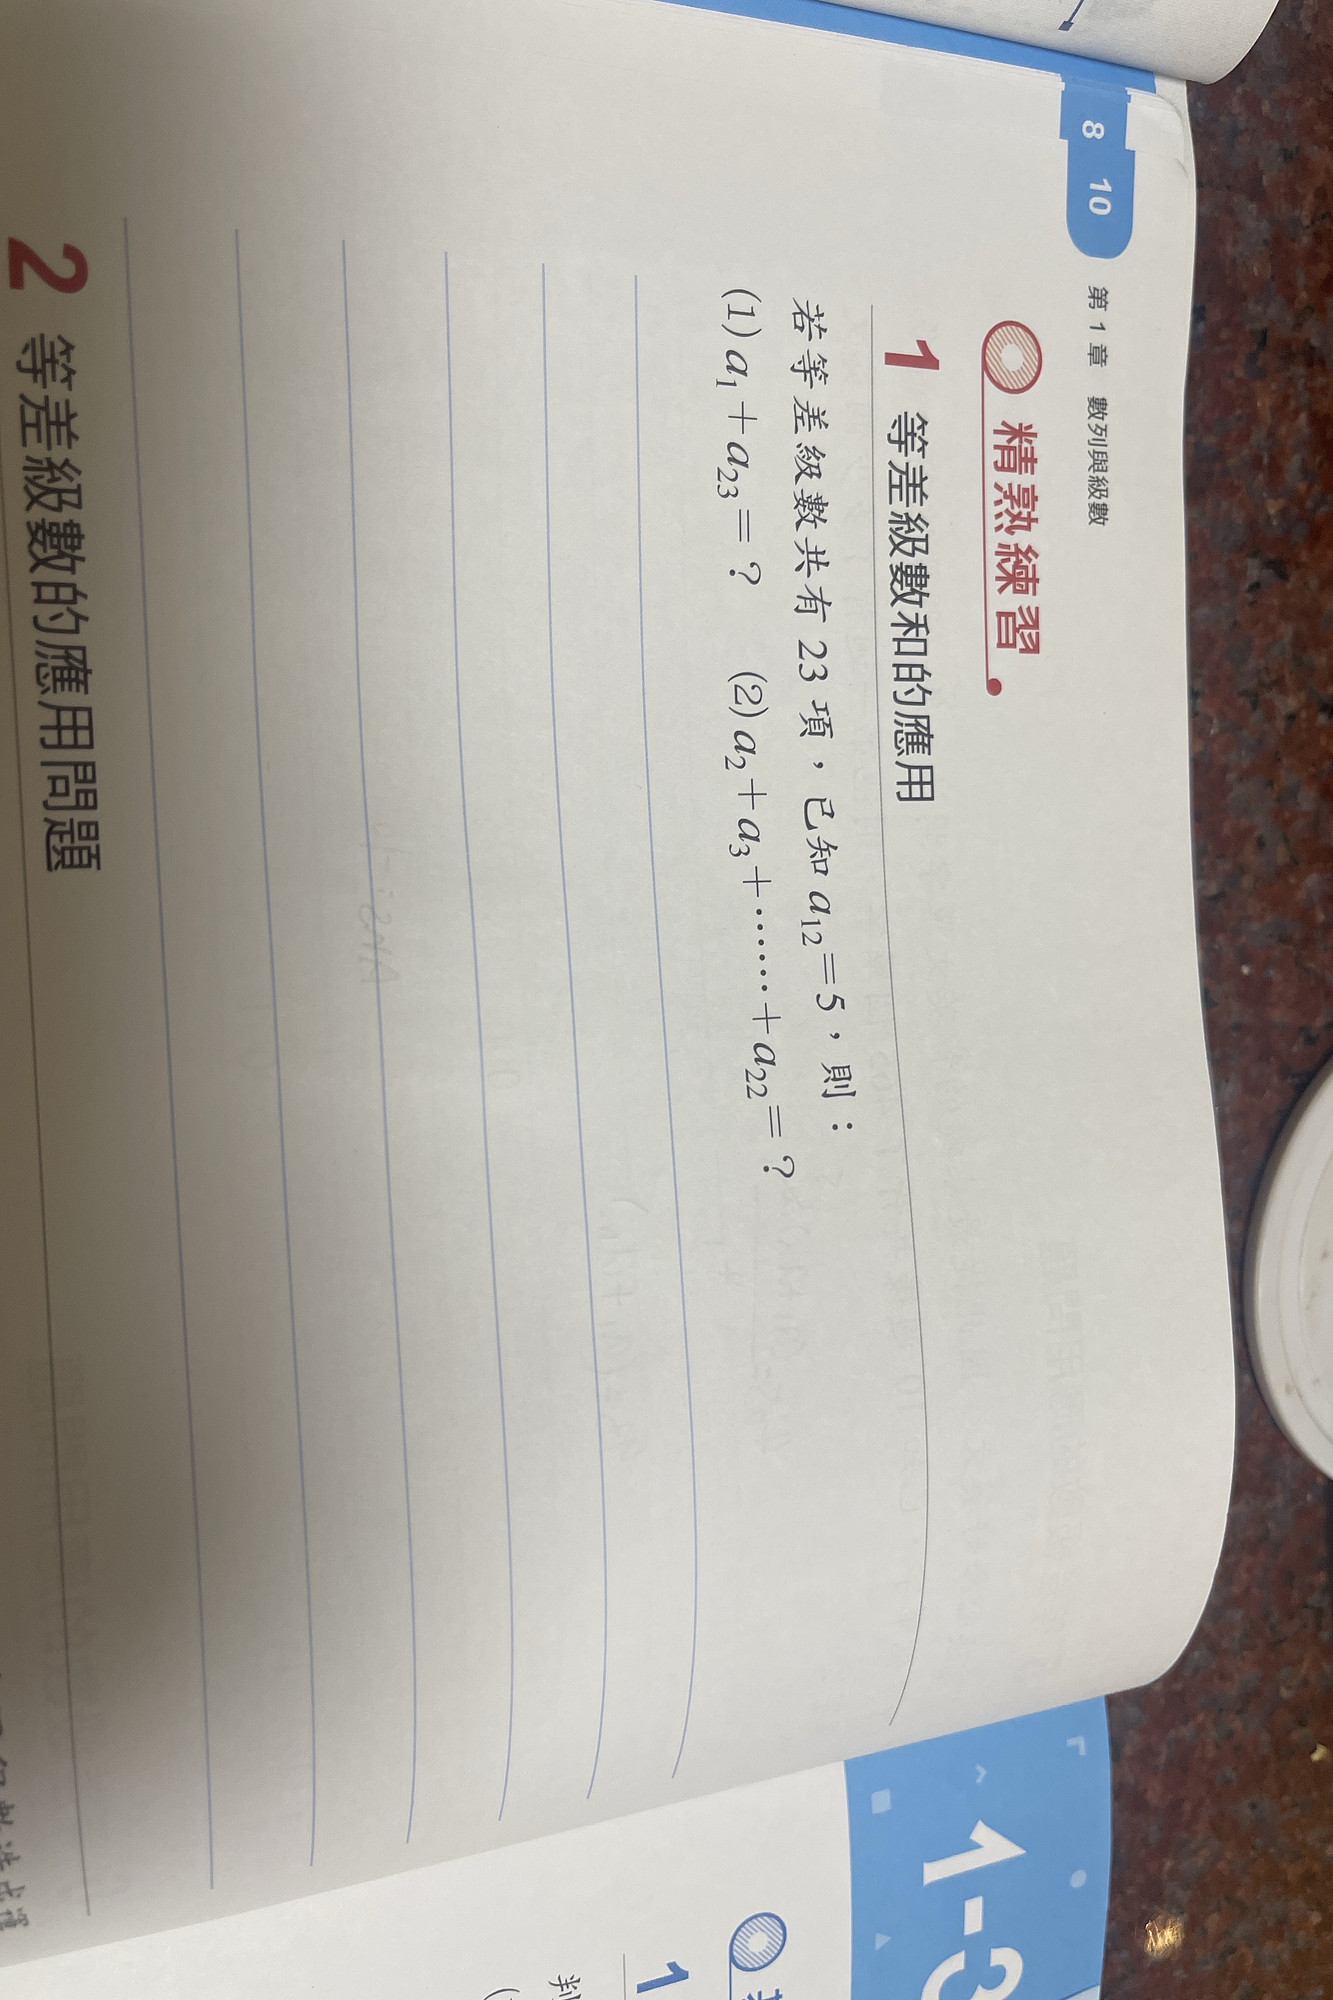 8 10 第1章 數列與級數
精熟練習
1 等差級數和的應用
若等差級數共有 23 項，已知 a₁₂＝5，則：
(1) a₁＋a₂₃＝？ (2) a₂＋a₃＋……＋a₂₂＝？
2 等差級數的應用問題
1-3
1
判